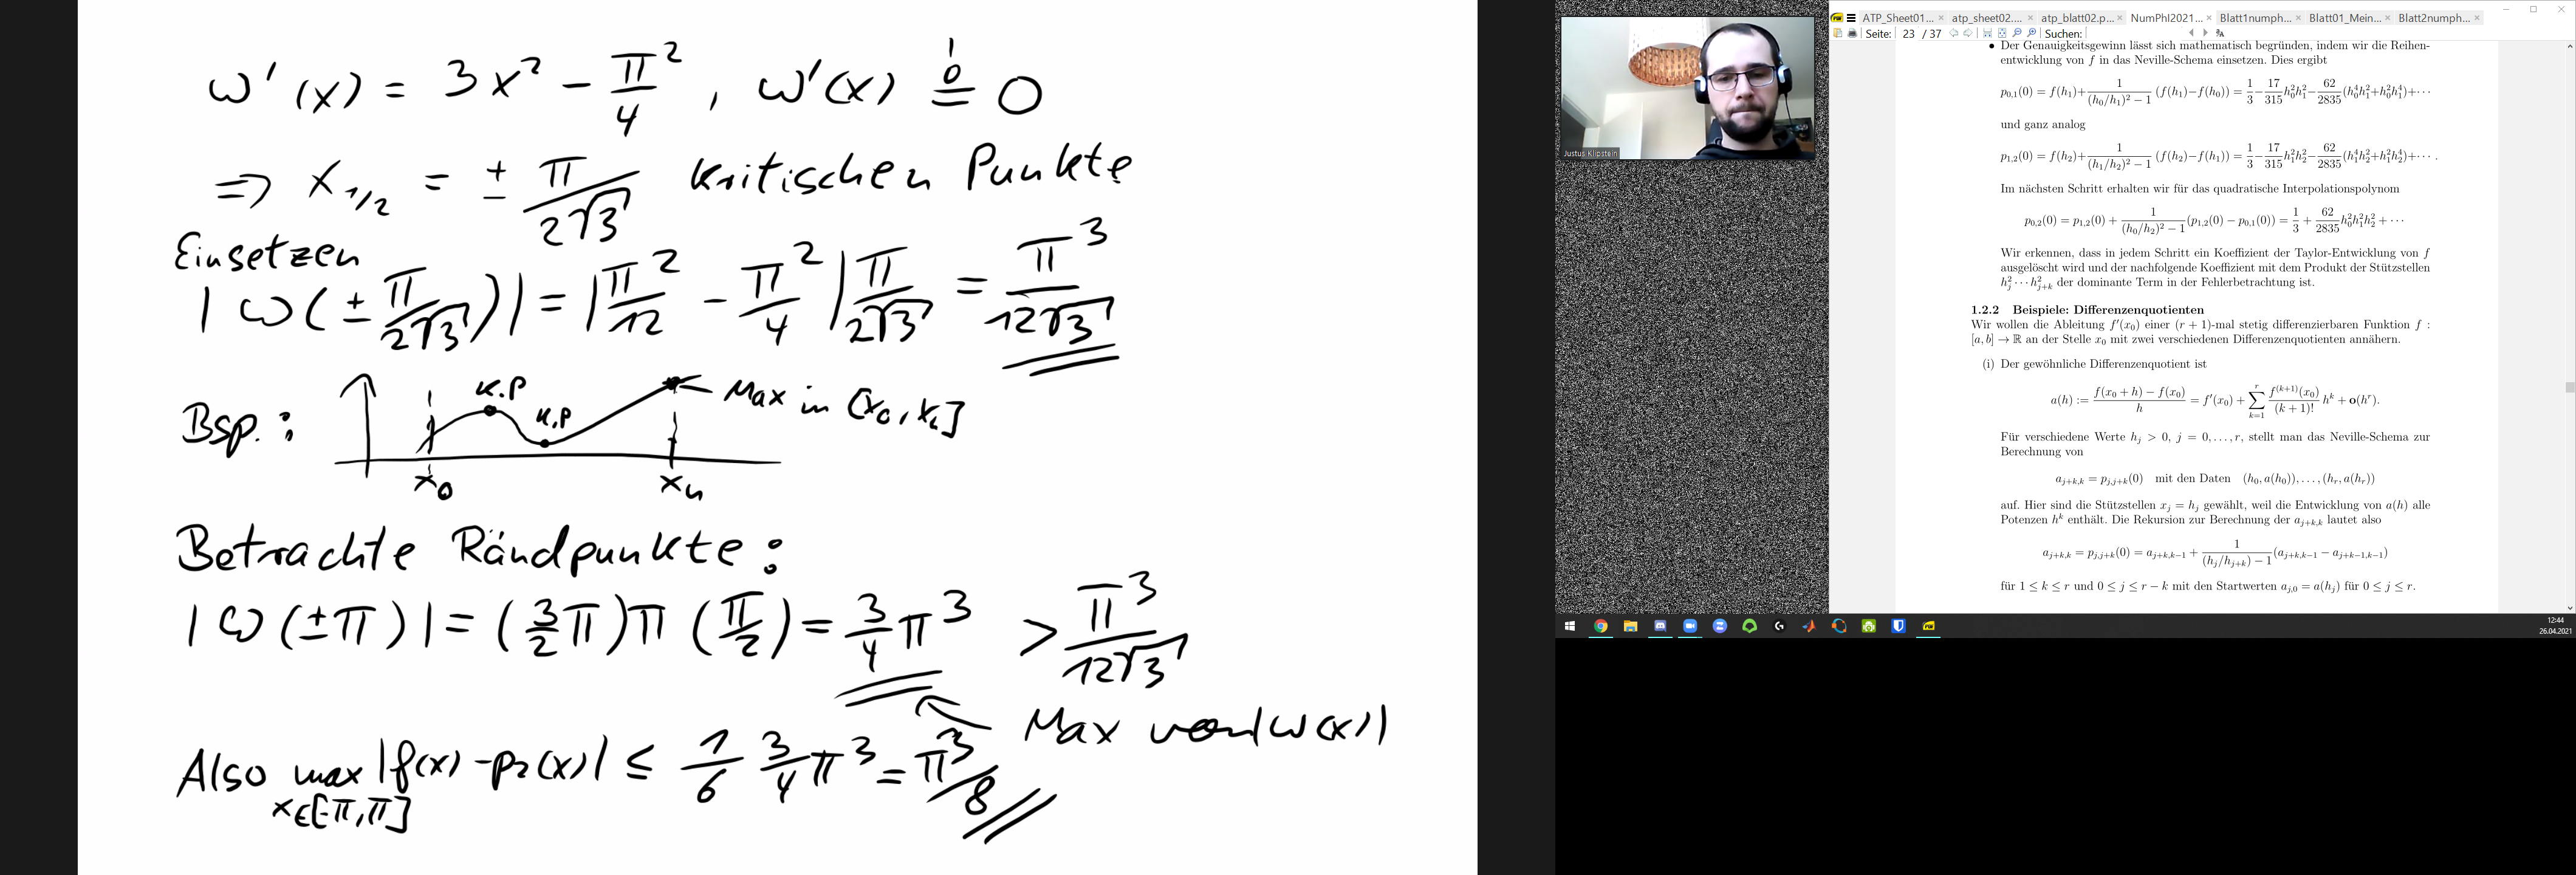 ω'(x) = 3x² − π²/4 , ω'(x) =! 0
⇒ x_{1/2} = ± π/(2√3) kritischen Punkte
Einsetzen
|ω(± π/(2√3))| = |π²/12 − π²/4| π/(2√3) = π³/(12√3)
Bsp.:
K.P
K.P
Max in [x₀, xₙ]
x₀
xₙ
Betrachte Rändpunkte:
|ω(±π)| = (3/2 π) π (π/2) = 3/4 π³ > π³/(12√3)
Max von |ω(x)|
Also max |f(x) − p₂(x)| ≤ 1/6 3/4 π³ = π³/8
x∈[−π,π]
Justus Klipstein
ATP_Sheet01... × atp_sheet02.... × atp_blatt02.p... × NumPhI2021... × Blatt1numph... × Blatt01_Mein... × Blatt2numph... ×
Seite: 23 / 37 Suchen:
• Der Genauigkeitsgewinn lässt sich mathematisch begründen, indem wir die Reihen-
entwicklung von f in das Neville-Schema einsetzen. Dies ergibt
p_{0,1}(0) = f(h₁)+ 1/((h₀/h₁)² − 1) (f(h₁)−f(h₀)) = 1/3 − 17/315 h₀²h₁² − 62/2835 (h₀⁴h₁²+h₀²h₁⁴)+···
und ganz analog
p_{1,2}(0) = f(h₂)+ 1/((h₁/h₂)² − 1) (f(h₂)−f(h₁)) = 1/3 − 17/315 h₁²h₂² − 62/2835 (h₁⁴h₂²+h₁²h₂⁴)+··· .
Im nächsten Schritt erhalten wir für das quadratische Interpolationspolynom
p_{0,2}(0) = p_{1,2}(0) + 1/((h₀/h₂)² − 1) (p_{1,2}(0) − p_{0,1}(0)) = 1/3 + 62/2835 h₀²h₁²h₂² + ···
Wir erkennen, dass in jedem Schritt ein Koeffizient der Taylor-Entwicklung von f
ausgelöscht wird und der nachfolgende Koeffizient mit dem Produkt der Stützstellen
h_j² ··· h_{j+k}² der dominante Term in der Fehlerbetrachtung ist.
1.2.2 Beispiele: Differenzenquotienten
Wir wollen die Ableitung f′(x₀) einer (r + 1)-mal stetig differenzierbaren Funktion f :
[a, b] → ℝ an der Stelle x₀ mit zwei verschiedenen Differenzenquotienten annähern.
(i) Der gewöhnliche Differenzenquotient ist
a(h) := (f(x₀ + h) − f(x₀))/h = f′(x₀) + ∑_{k=1}^{r} f^{(k+1)}(x₀)/(k + 1)! h^k + o(h^r).
Für verschiedene Werte h_j > 0, j = 0, . . . , r, stellt man das Neville-Schema zur
Berechnung von
a_{j+k,k} = p_{j,j+k}(0) mit den Daten (h₀, a(h₀)), . . . , (h_r, a(h_r))
auf. Hier sind die Stützstellen x_j = h_j gewählt, weil die Entwicklung von a(h) alle
Potenzen h^k enthält. Die Rekursion zur Berechnung der a_{j+k,k} lautet also
a_{j+k,k} = p_{j,j+k}(0) = a_{j+k,k−1} + 1/((h_j/h_{j+k}) − 1) (a_{j+k,k−1} − a_{j+k−1,k−1})
für 1 ≤ k ≤ r und 0 ≤ j ≤ r − k mit den Startwerten a_{j,0} = a(h_j) für 0 ≤ j ≤ r.
12:44
26.04.2021